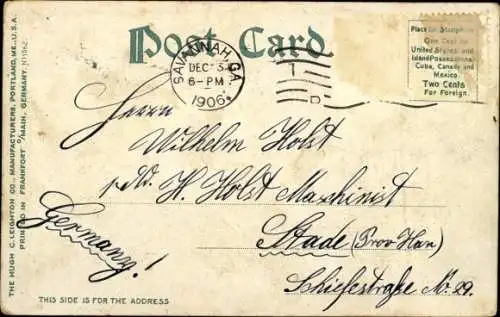 Post Card
Place for Stamp here
One Cent for
United States and
Island Possessions,
Cuba, Canada and
Mexico
Two Cents
For Foreign.
SAVANNAH, GA.
DEC 3
6-PM
1906
Herrn
Wilhelm Holst
H. Holst Maschinist
Stade (Prov Han)
Schiefestraße No. 29.
Germany!
THIS SIDE IS FOR THE ADDRESS
THE HUGH C. LEIGHTON CO., MANUFACTURERS, PORTLAND, ME., U.S.A.
PRINTED IN FRANKFORT O/MAIN, GERMANY.